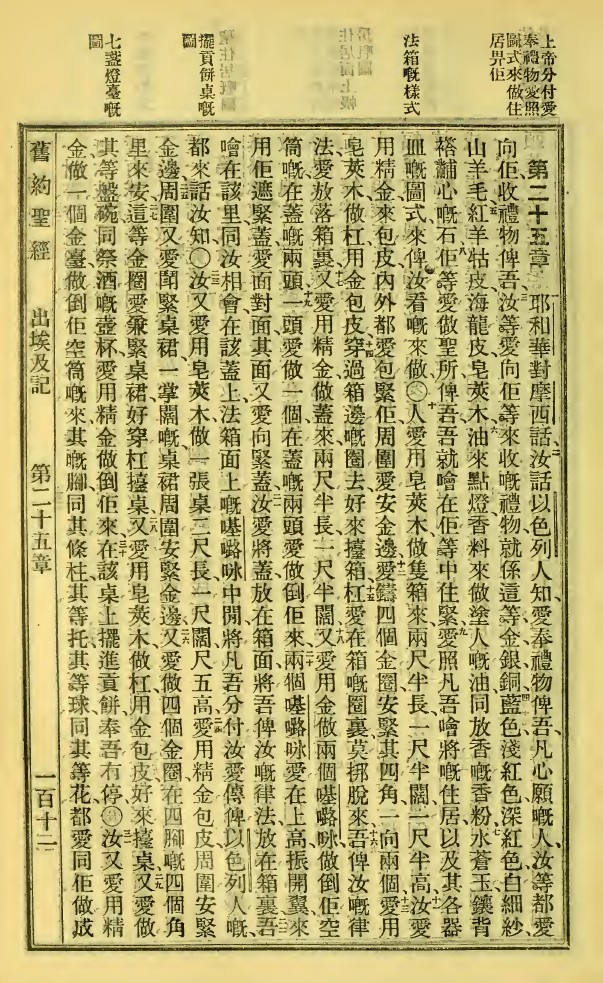 上帝分付愛
奉禮物愛照
圖式來做住
居畀佢
法箱嘅樣式
擺貢餅桌嘅
圖
七盞燈臺嘅
圖
第二十五章 耶和華對摩西話汝話以色列人知愛奉禮物俾吾凡心願嘅人汝等都愛
向佢收禮物俾吾汝等愛向佢等來收嘅禮物就係這等金銀銅藍色淺紅色深紅色白細紗
山羊毛紅羊牯皮海龍皮皂莢木油來點燈香料來做塗人嘅油同放香嘅香粉水蒼玉鑲背
褡黼心嘅石佢等愛做聖所俾吾吾就噲在佢等中住緊愛照凡吾噲將嘅住居以及其各器
皿嘅圖式來俾汝看嘅來做〇人愛用皂莢木做隻箱來兩尺半長一尺半闊一尺半高汝愛
用精金來包皮內外都愛包緊佢周圍愛安金邊愛鑄四個金圈安緊其四角一向兩個愛用
皂莢木做杠用金包皮穿過箱邊嘅圈去好來擡箱杠愛在箱嘅圈裏莫挷脫來吾俾汝嘅律
法愛放落箱裏又愛用精金做蓋來兩尺半長一尺半闊又愛用金做兩個𠼻嚕咏做倒佢空
筒嘅在蓋嘅兩頭一頭愛做一個在蓋嘅兩頭愛做倒佢來兩個𠼻嚕咏愛在上高振開翼來
用佢遮緊蓋愛面對面其面又愛向緊蓋汝愛將蓋放在箱面將吾俾汝嘅律法放在箱裏吾
噲在該里同汝相會在該蓋上法箱面上嘅𠼻嚕咏中閒將凡吾分付汝愛傳俾以色列人嘅
都來話汝知〇汝又愛用皂莢木做一張桌二尺長一尺闊尺五高愛用精金包皮周圍安緊
金邊周圍又愛閗緊桌裙一掌闊嘅桌裙周圍安緊金邊又愛做四個金圈在四腳嘅四個角
里來安這等金圈愛兼緊桌裙好穿杠擡桌又愛用皂莢木做杠用金包皮好來擡桌又愛做
其等盤碗同祭酒嘅壺杯愛用精金做倒佢來在該桌上擺進貢餅奉吾冇停〇汝又愛用精
金做一個金臺做倒佢空筒嘅來其嘅腳同其條柱其等托其等球同其等花都愛同佢做成
舊約聖經 出埃及記 第二十五章 一百十二